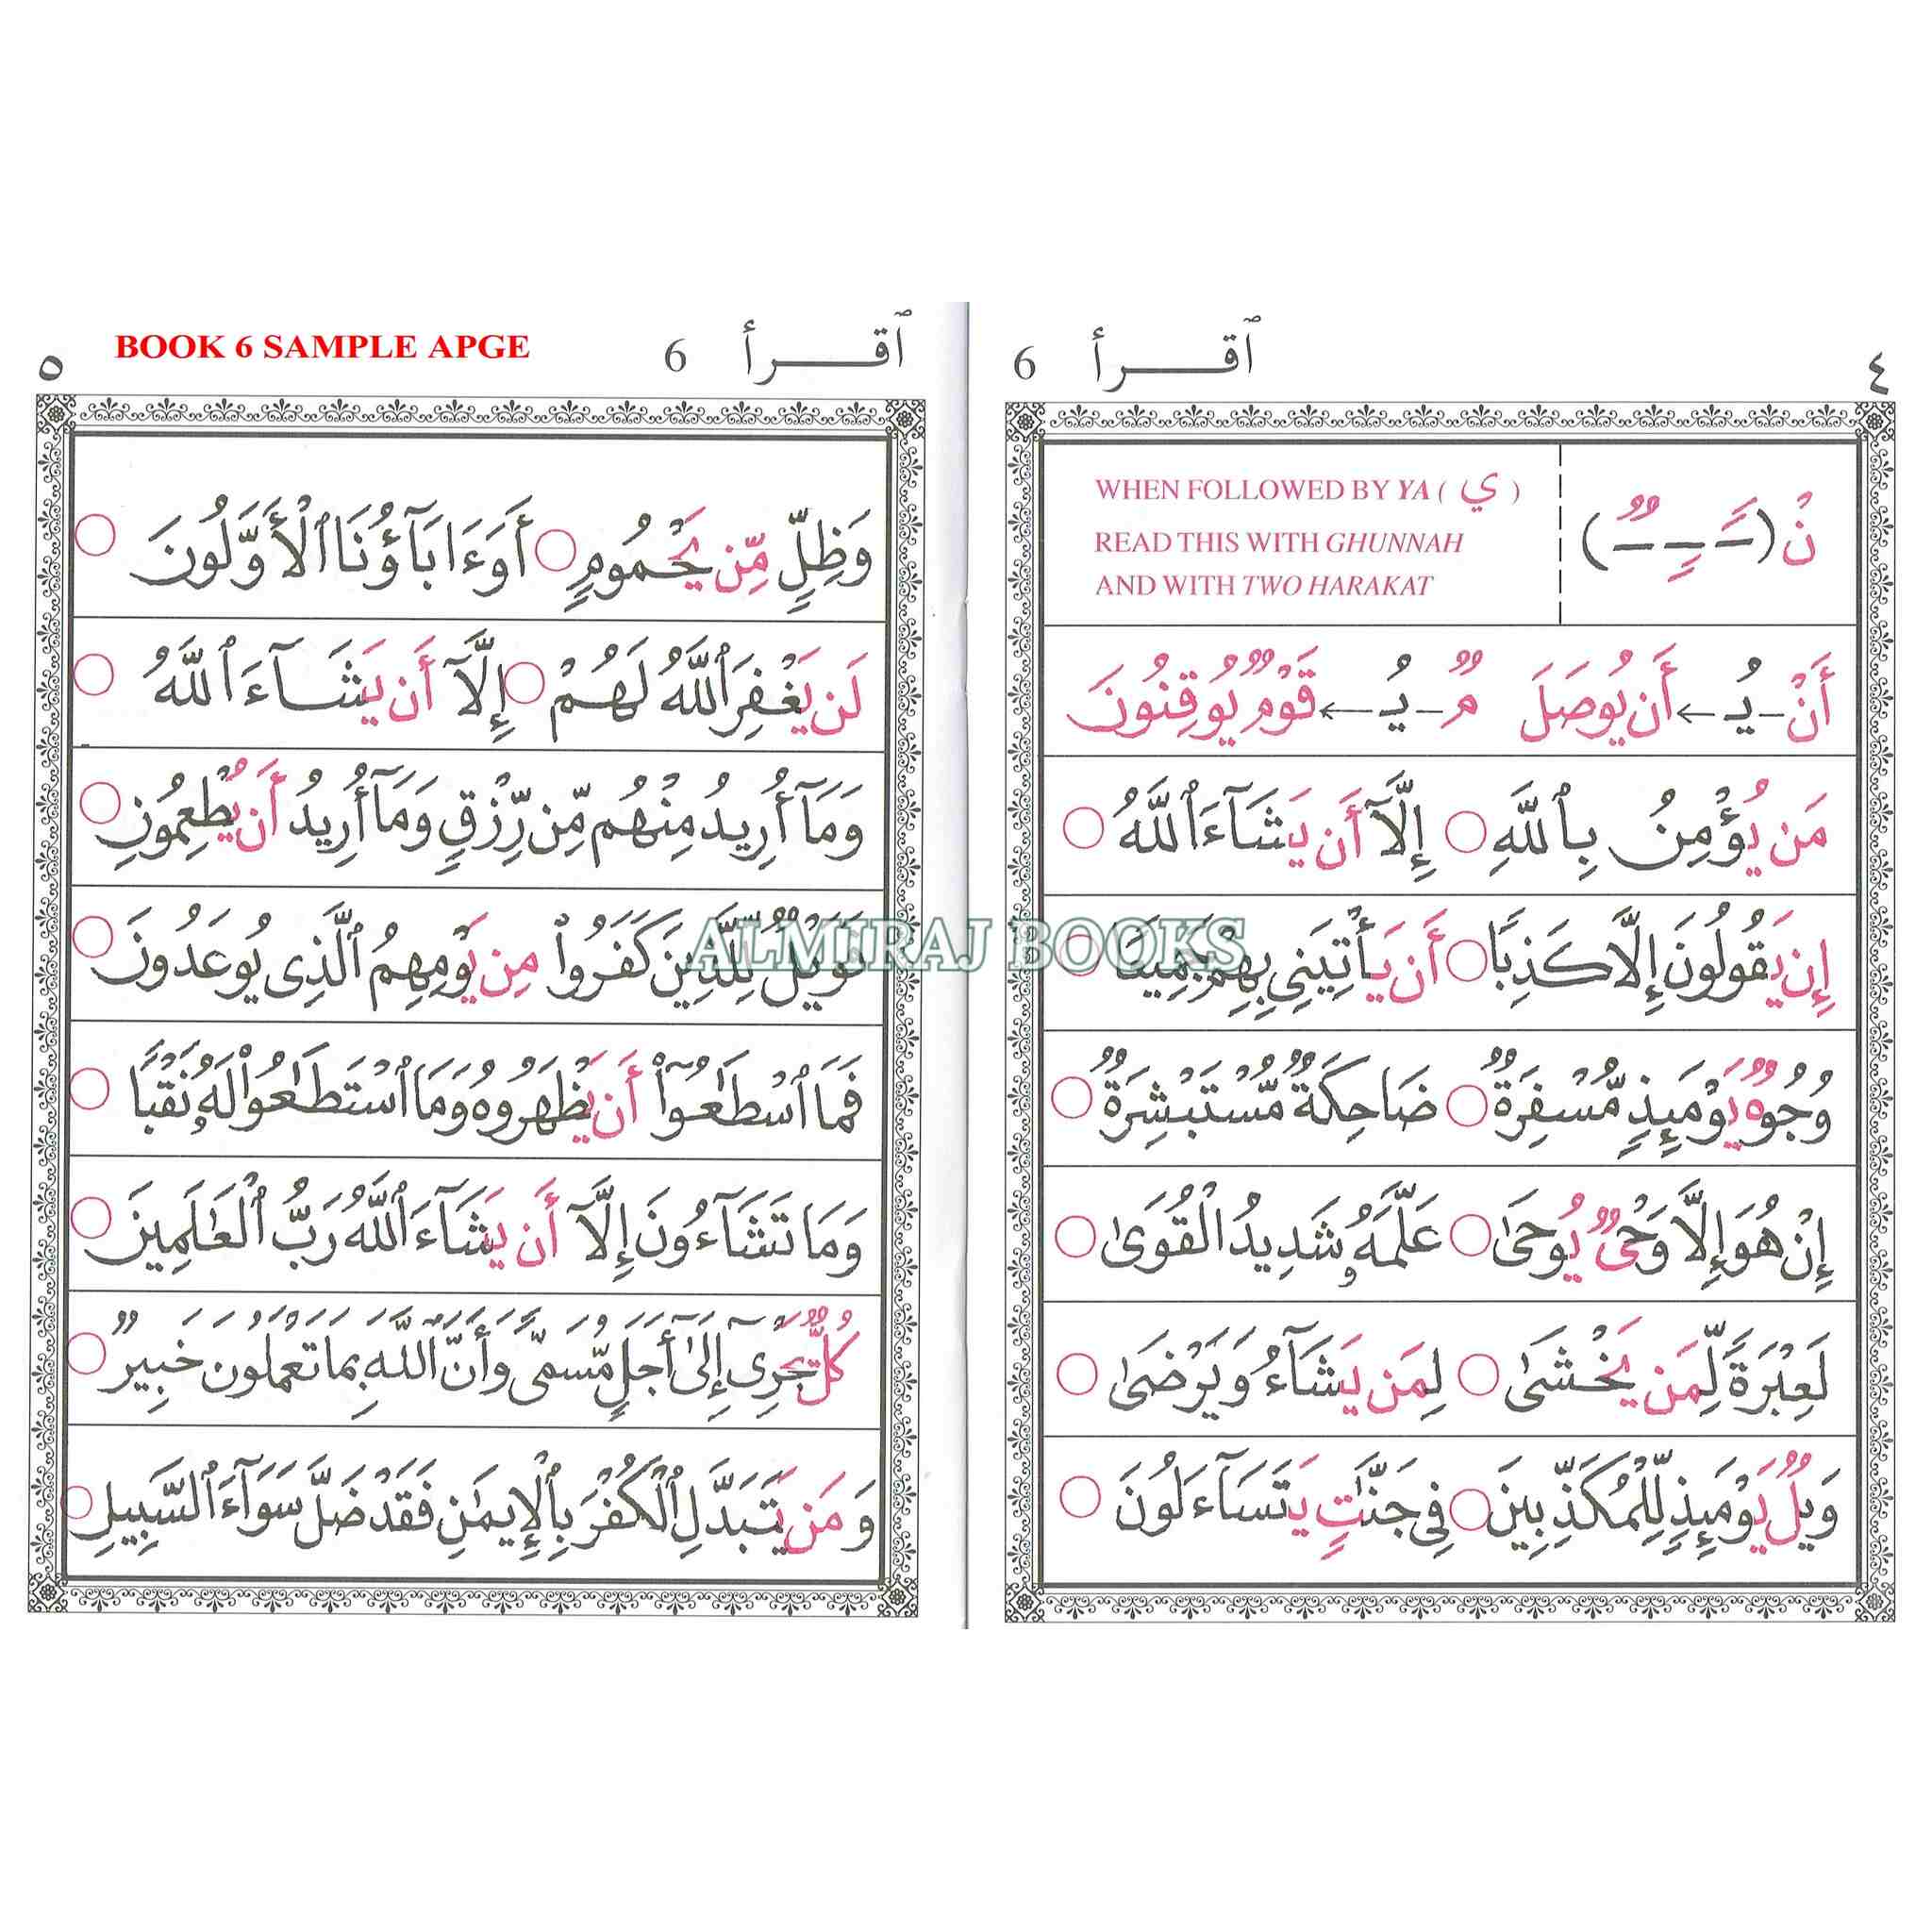 ٤
ٱقـــرأ 6
نْ (ــًــٍــٌ)
WHEN FOLLOWED BY YA ( ي )
READ THIS WITH GHUNNAH
AND WITH TWO HARAKAT
أَنْ – يُـ ← أَن يُوصَلَ مٌ – يُـ ← قَوْمٌ يُوقِنُونَ
مَن يُؤْمِنُ بِٱللَّهِ ○ إِلَّآ أَن يَشَآءَ ٱللَّهُ ○
إِن يَقُولُونَ إِلَّا كَذِبًا ○ أَن يَأْتِيَنِى بِهِمْ جَمِيعًا ○
وُجُوهٌ يَوْمَئِذٍ مُّسْفِرَةٌ ○ ضَاحِكَةٌ مُّسْتَبْشِرَةٌ ○
إِنْ هُوَ إِلَّا وَحْىٌ يُوحَىٰ ○ عَلَّمَهُۥ شَدِيدُ الْقُوَىٰ ○
لَعِبْرَةً لِّمَن يَخْشَىٰ ○ لِمَن يَشَآءُ وَيَرْضَىٰ ○
وَيْلٌ يَوْمَئِذٍ لِّلْمُكَذِّبِينَ ○ فِى جَنَّٰتٍ يَتَسَآءَلُونَ ○
BOOK 6 SAMPLE APGE
٥
ٱقـــرأ 6
وَظِلٍّ مِّن يَحْمُومٍ ○ أَوَءَابَآؤُنَا ٱلْأَوَّلُونَ ○
لَن يَغْفِرَ ٱللَّهُ لَهُمْ ○ إِلَّآ أَن يَشَآءَ ٱللَّهُ ○
وَمَآ أُرِيدُ مِنْهُم مِّن رِّزْقٍ وَمَآ أُرِيدُ أَن يُطْعِمُونِ ○
فَوَيْلٌ لِّلَّذِينَ كَفَرُوا۟ مِن يَوْمِهِمُ ٱلَّذِى يُوعَدُونَ ○
فَمَا ٱسْطَٰعُوٓا۟ أَن يَظْهَرُوهُ وَمَا ٱسْتَطَٰعُوا۟ لَهُۥ نَقْبًا ○
وَمَا تَشَآءُونَ إِلَّآ أَن يَشَآءَ ٱللَّهُ رَبُّ ٱلْعَٰلَمِينَ ○
كُلٌّ يَجْرِىٓ إِلَىٰٓ أَجَلٍ مُّسَمًّى وَأَنَّ ٱللَّهَ بِمَا تَعْمَلُونَ خَبِيرٌ ○
وَمَن يَتَبَدَّلِ ٱلْكُفْرَ بِٱلْإِيمَٰنِ فَقَدْ ضَلَّ سَوَآءَ ٱلسَّبِيلِ ○
ALMIRAJ BOOKS